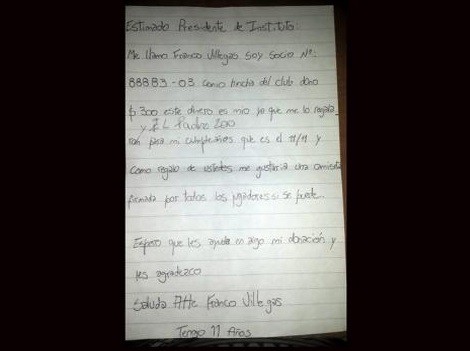 Estimado Presidente de Instituto:
Me llamo Franco Villegas soy socio Nº:
88883-03 como hincha del club dono
$ 300 este dinero es mio ya que me lo regala_
y EL Padre 200
ron para mi cumpleaños que es el 11/11 y
como regalo de ustedes me gustaria una camiseta
firmada por todos los jugadores si se puede...
Espero que les ayude en algo mi donación y
les agradezco
Saluda Atte Franco Villegas
Tengo 11 Años